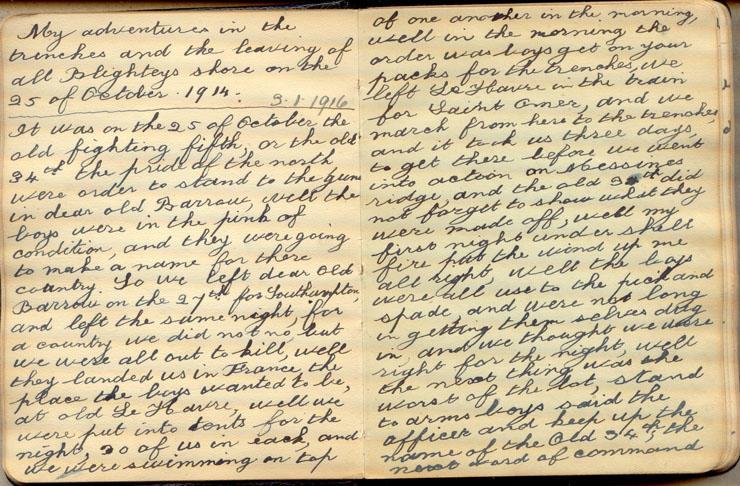 My adventures in the
trenches and the leaving of
all Blighteys shore on the
25 of October. 1914.
3.1.1916
It was on the 25 of October the
old fighting fifth, or the old
34th the pride of the north
were order to stand to the guns
in dear old Barrow, well the
boys were in the pink of
condition, and they were going
to make a name for there
country. So we left dear Old
Barrow on the 27th for Southampton,
and left the same night, for
a country we did not no, but
we were all out to kill, well
they landed us in France, the
place the boys wanted to be,
at old Le Havre, well we
were put into tents for the
night, 20 of us in each, and
we were swimming on top
of one another in the morning,
well in the morning the
order was boys get on your
packs for the trenches, we
left Le Havre in the train
for Saint Omer, and we
march from here to the trenches
and it took us three days,
to get there before we went
into action on Messines
ridge, and the old 34th did
not forget to show what they
were made off, well my
first night under shell
fire put the wind up me
all right, well the boys
were all use to the pick and
spade, and were not long
in getting them selves dug
in, and we thought we were
right for the night, well
the next thing was the
worst of the lot, stand
to arms boys said the
officer and keep up the
name of the Old 34th, the
next word of command